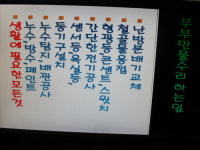 부부만물수리하는일
난방분배기교체
철골물용접
형광등콘센트/스윗치
간단한전기공사
센서등욕실등
등기구설치
누수탐지배관공사
누수방수페인트
생활에필요한모든것